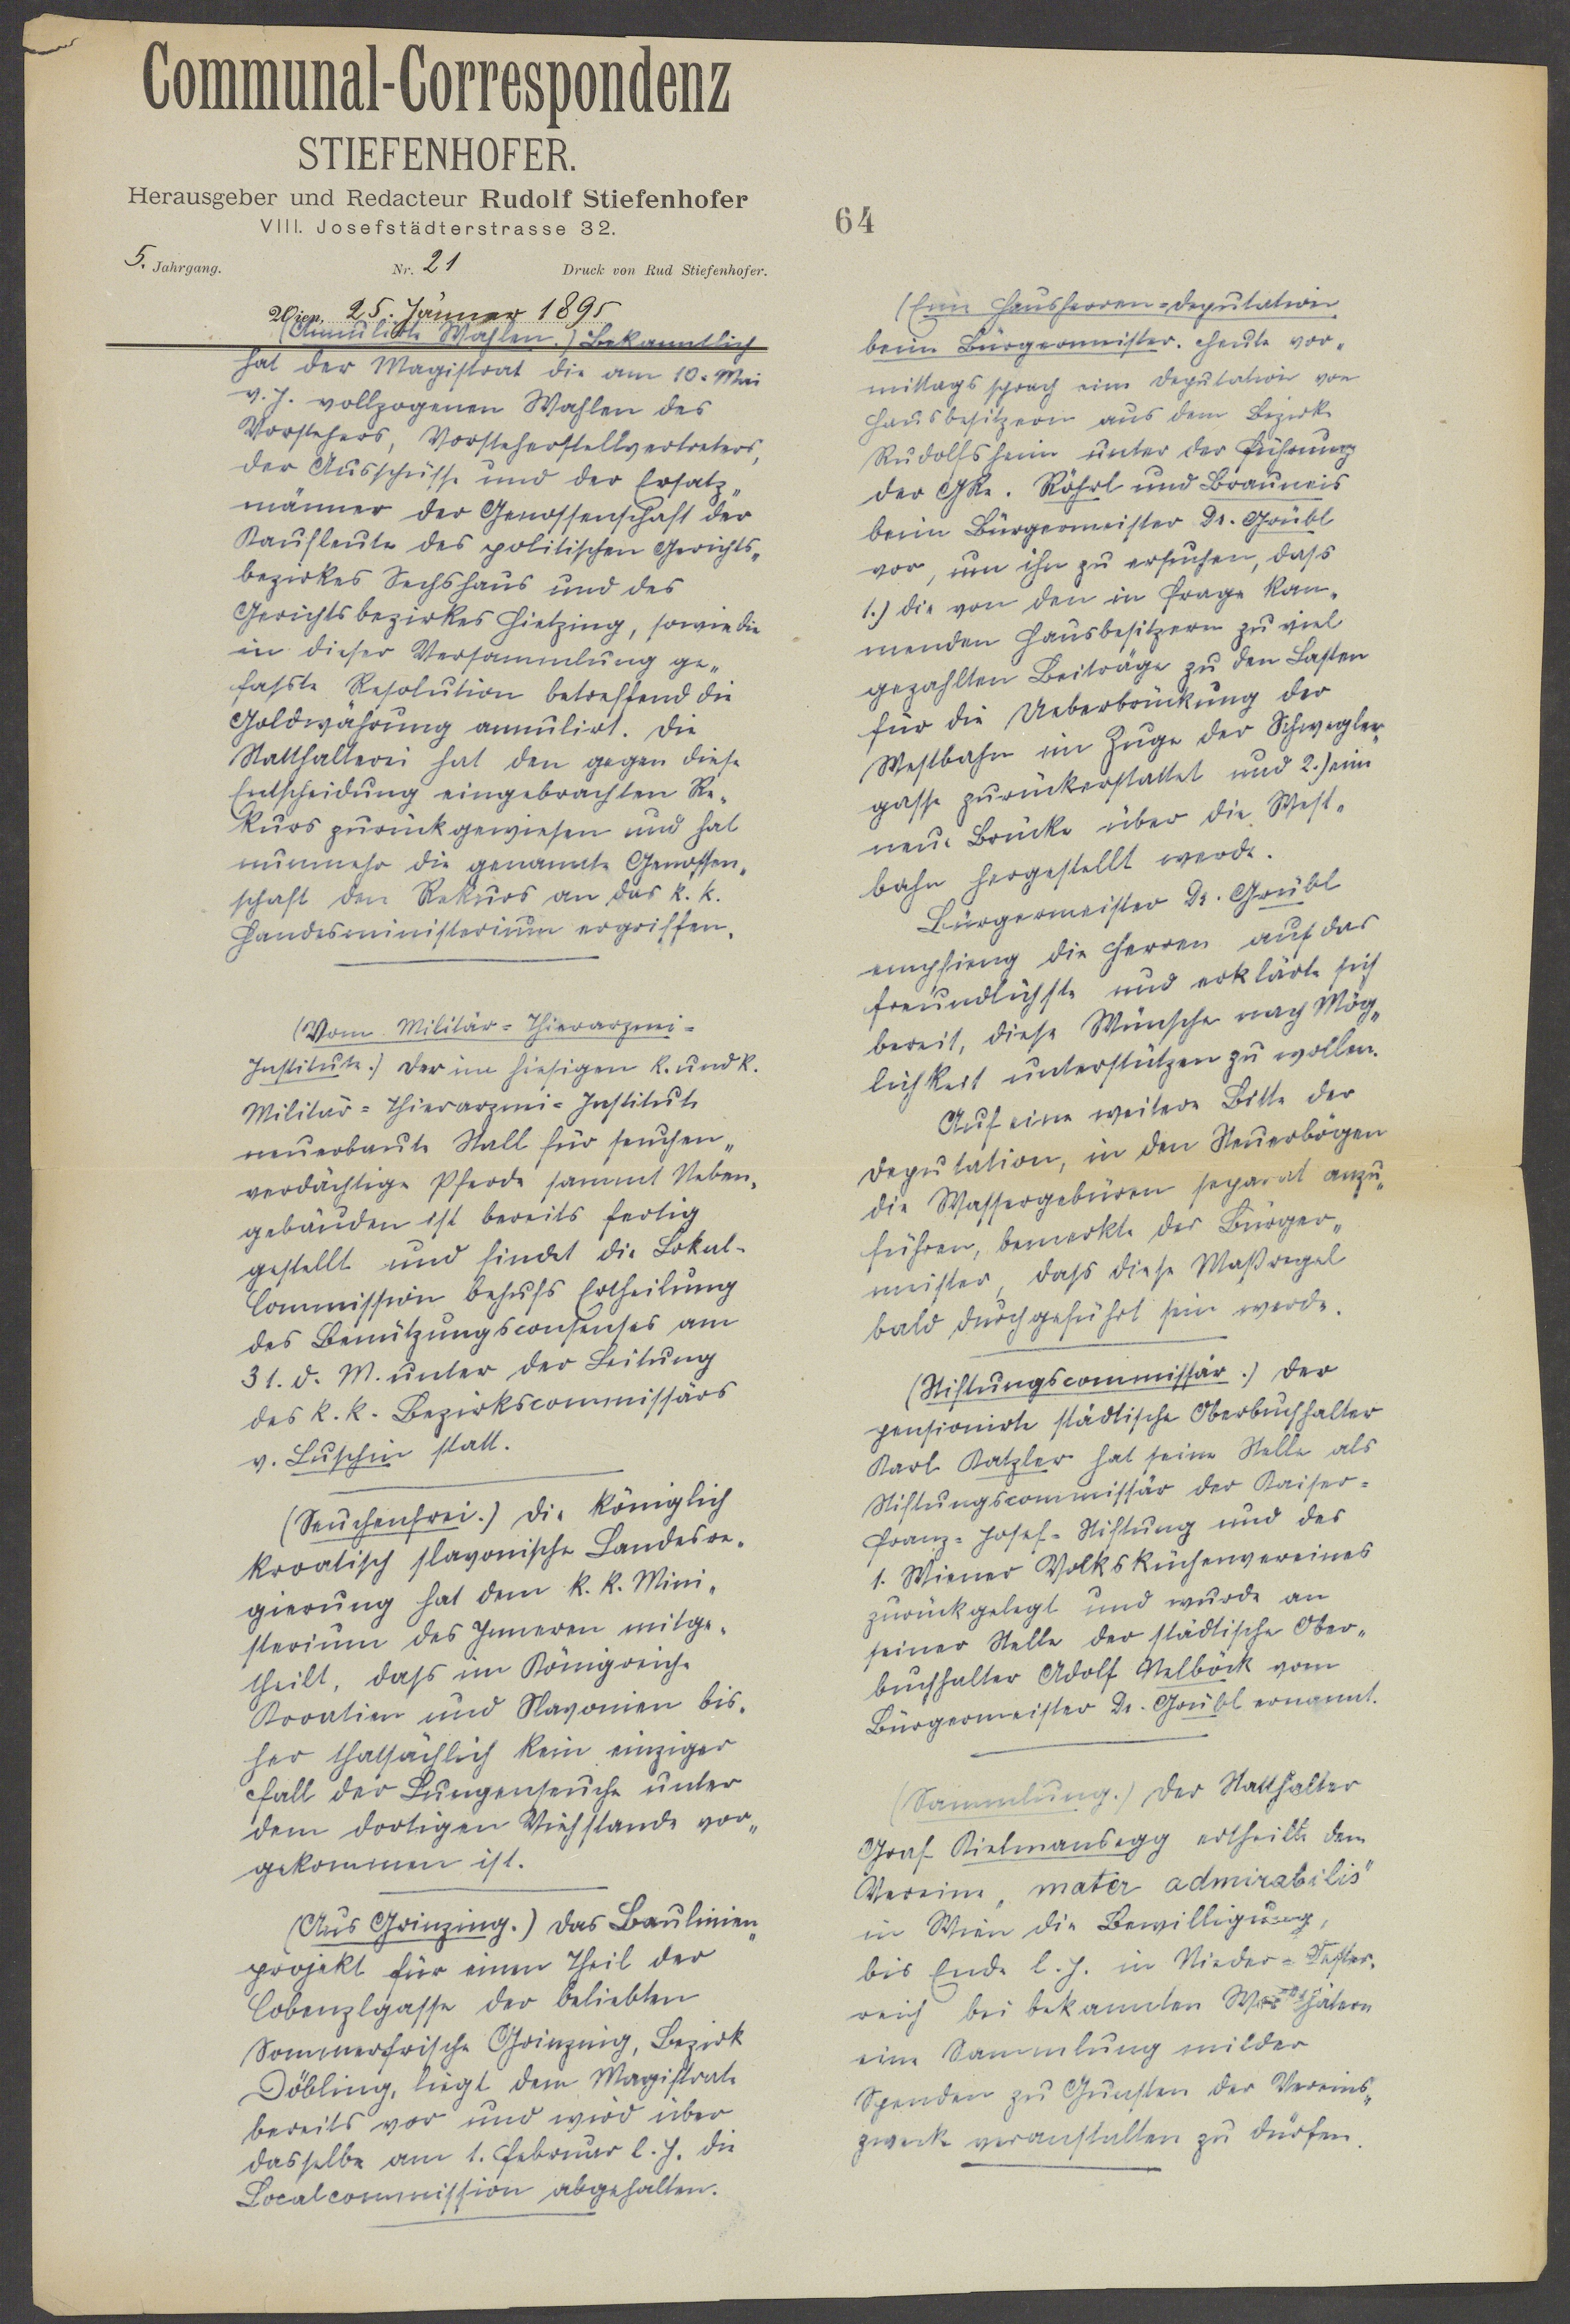 Communal-Correspondenz
STIEFENHOFER.
Herausgeber und Redacteur Rudolf Stiefenhofer
VIII. Josefstädterstrasse 32.
5. Jahrgang. Nr. 21 Druck von Rud Stiefenhofer.
Wien, 25. Jänner 1895
(Annulirte Wahlen.) Bekanntlich
hat der Magistrat die am 10. Mai
v. J. vollzogenen Wahlen des
Vorstehers, Vorsteherstellvertreters,
der Ausschüsse und der Ersatz„
männer der Genossenschaft der
Kaufleute des politischen Gerichts„
bezirkes Sechshaus und des
Gerichtsbezirkes Hietzing, sowie die
in dieser Versammlung ge„
fasste Resolution betreffend die
Goldwährung annulirt. Die
Statthalterei hat den gegen diese
Entscheidung eingebrachten Re„
kurs zurückgewiesen und hat
nunmehr die genannte Genossen„
schaft den Rekurs an das k. k.
Handesministerium ergriffen.
(Vom Militär=Thierarznei=
Institute.) Der im hiesigen k. und k.
Militär=Thierarznei=Institute
neuerbaute Stall für seuchen„
verdächtige Pferde sammt Neben„
gebäuden ist bereits fertig
gestellt und findet die Lokal-
Commission behufs Ertheilung
des Benützungsconsenses am
31. d. M. unter der Leitung
des k. k. Bezirkscommissärs
v. Luschin statt.
(Seuchenfrei.) Die königlich
kroatisch slavonische Landesre„
gierung hat dem k. k. Mini„
sterium des Inneren mitge„
theilt, dass im Königreiche
Kroatien und Slavonien bis„
her thatsächlich kein einziger
Fall der Lungenseuche unter
dem dortigen Viehstande vor„
gekommen ist.
(Aus Grinzing.) Das Baulinien„
projekt für einen Theil der
Cobenzlgasse der beliebten
Sommerfrische Grinzing, Bezirk
Döbling, liegt dem Magistrate
bereits vor und wird über
dasselbe am 1. Februar l. J. die
Localcommission abgehalten.
64
(Eine Hausherren=Deputation
beim Bürgermeister. Heute vor„
mittags sprach eine Deputation von
Hausbesitzern aus dem Bezirke
Rudolfsheim unter der Führung
der GRe. Röhrl und Brauneis
beim Bürgermeister Dr. Grübl
vor, um ihn zu ersuchen, dass
1.) die von den in Frage kom„
menden Hausbesitzern zu viel
gezahlten Beiträge zu den Lasten
für die Ueberbrückung der
Westbahn im Zuge der Schwegler„
gasse zurückerstattet und 2.) eine
neue Brücke über die West„
bahn hergestellt werde.
Bürgermeister Dr. Grübl
empfieng die Herren auf das
freundlichste und erklärte sich
bereit, diese Wünsche nach Mög„
lichkeit unterstützen zu wollen.
Auf eine weitere Bitte der
Deputation, in den Steuerbögen
die Wassergebüren separat anzu„
führen, bemerkte der Bürger„
meister, dass diese Maßregel
bald durchgeführt sein werde.
(Stiftungscommissär.) Der
pensionirte städtische Oberbuchhalter
Karl Katzler hat seine Stelle als
Stiftungscommissär der Kaiser=
Franz=Josef=Stiftung und des
1. Wiener Volksküchenvereines
zurückgelegt und wurde an
seiner Stelle der städtische Ober„
buchhalter Adolf Nelböck vom
Bürgermeister Dr. Grübl ernannt.
(Sammlung.) Der Statthalter
Graf Kielmansegg ertheilte dem
Vereine „mater admirabilis"
in Wien die Bewilligung,
bis Ende l. J. in Nieder=Oester„
reich bei bekannten Wohlthätern
eine Sammlung milder
Spenden zu Gunsten der Vereins„
zwecke veranstalten zu dürfen.